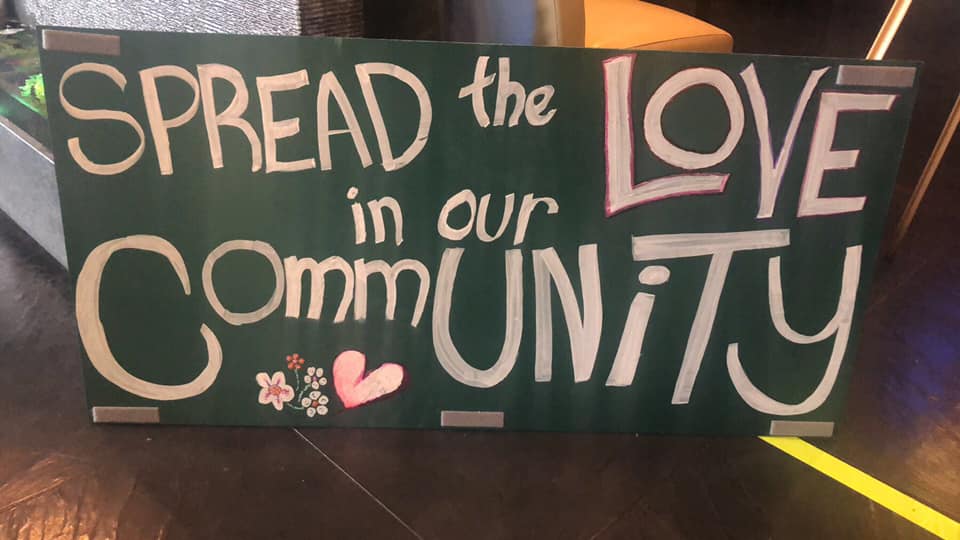 SPREAD the LOVE
in our
CommUNiTy